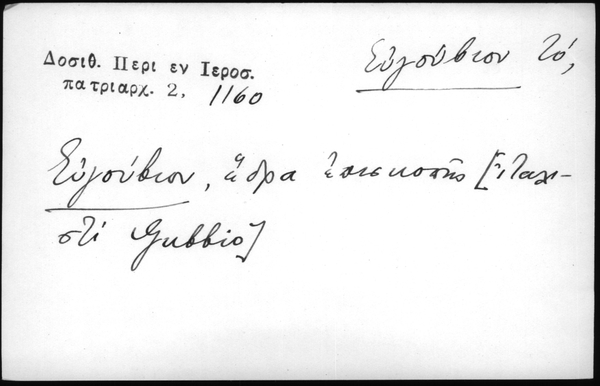 Δοσιθ. Περι εν Ιεροσ.
πατριαρχ. 2, 1160
Εὐγούβιον τό,
Εὐγούβιον, ἕδρα ἐπισκοπῆς [ἰταλι-
στί Gubbio]